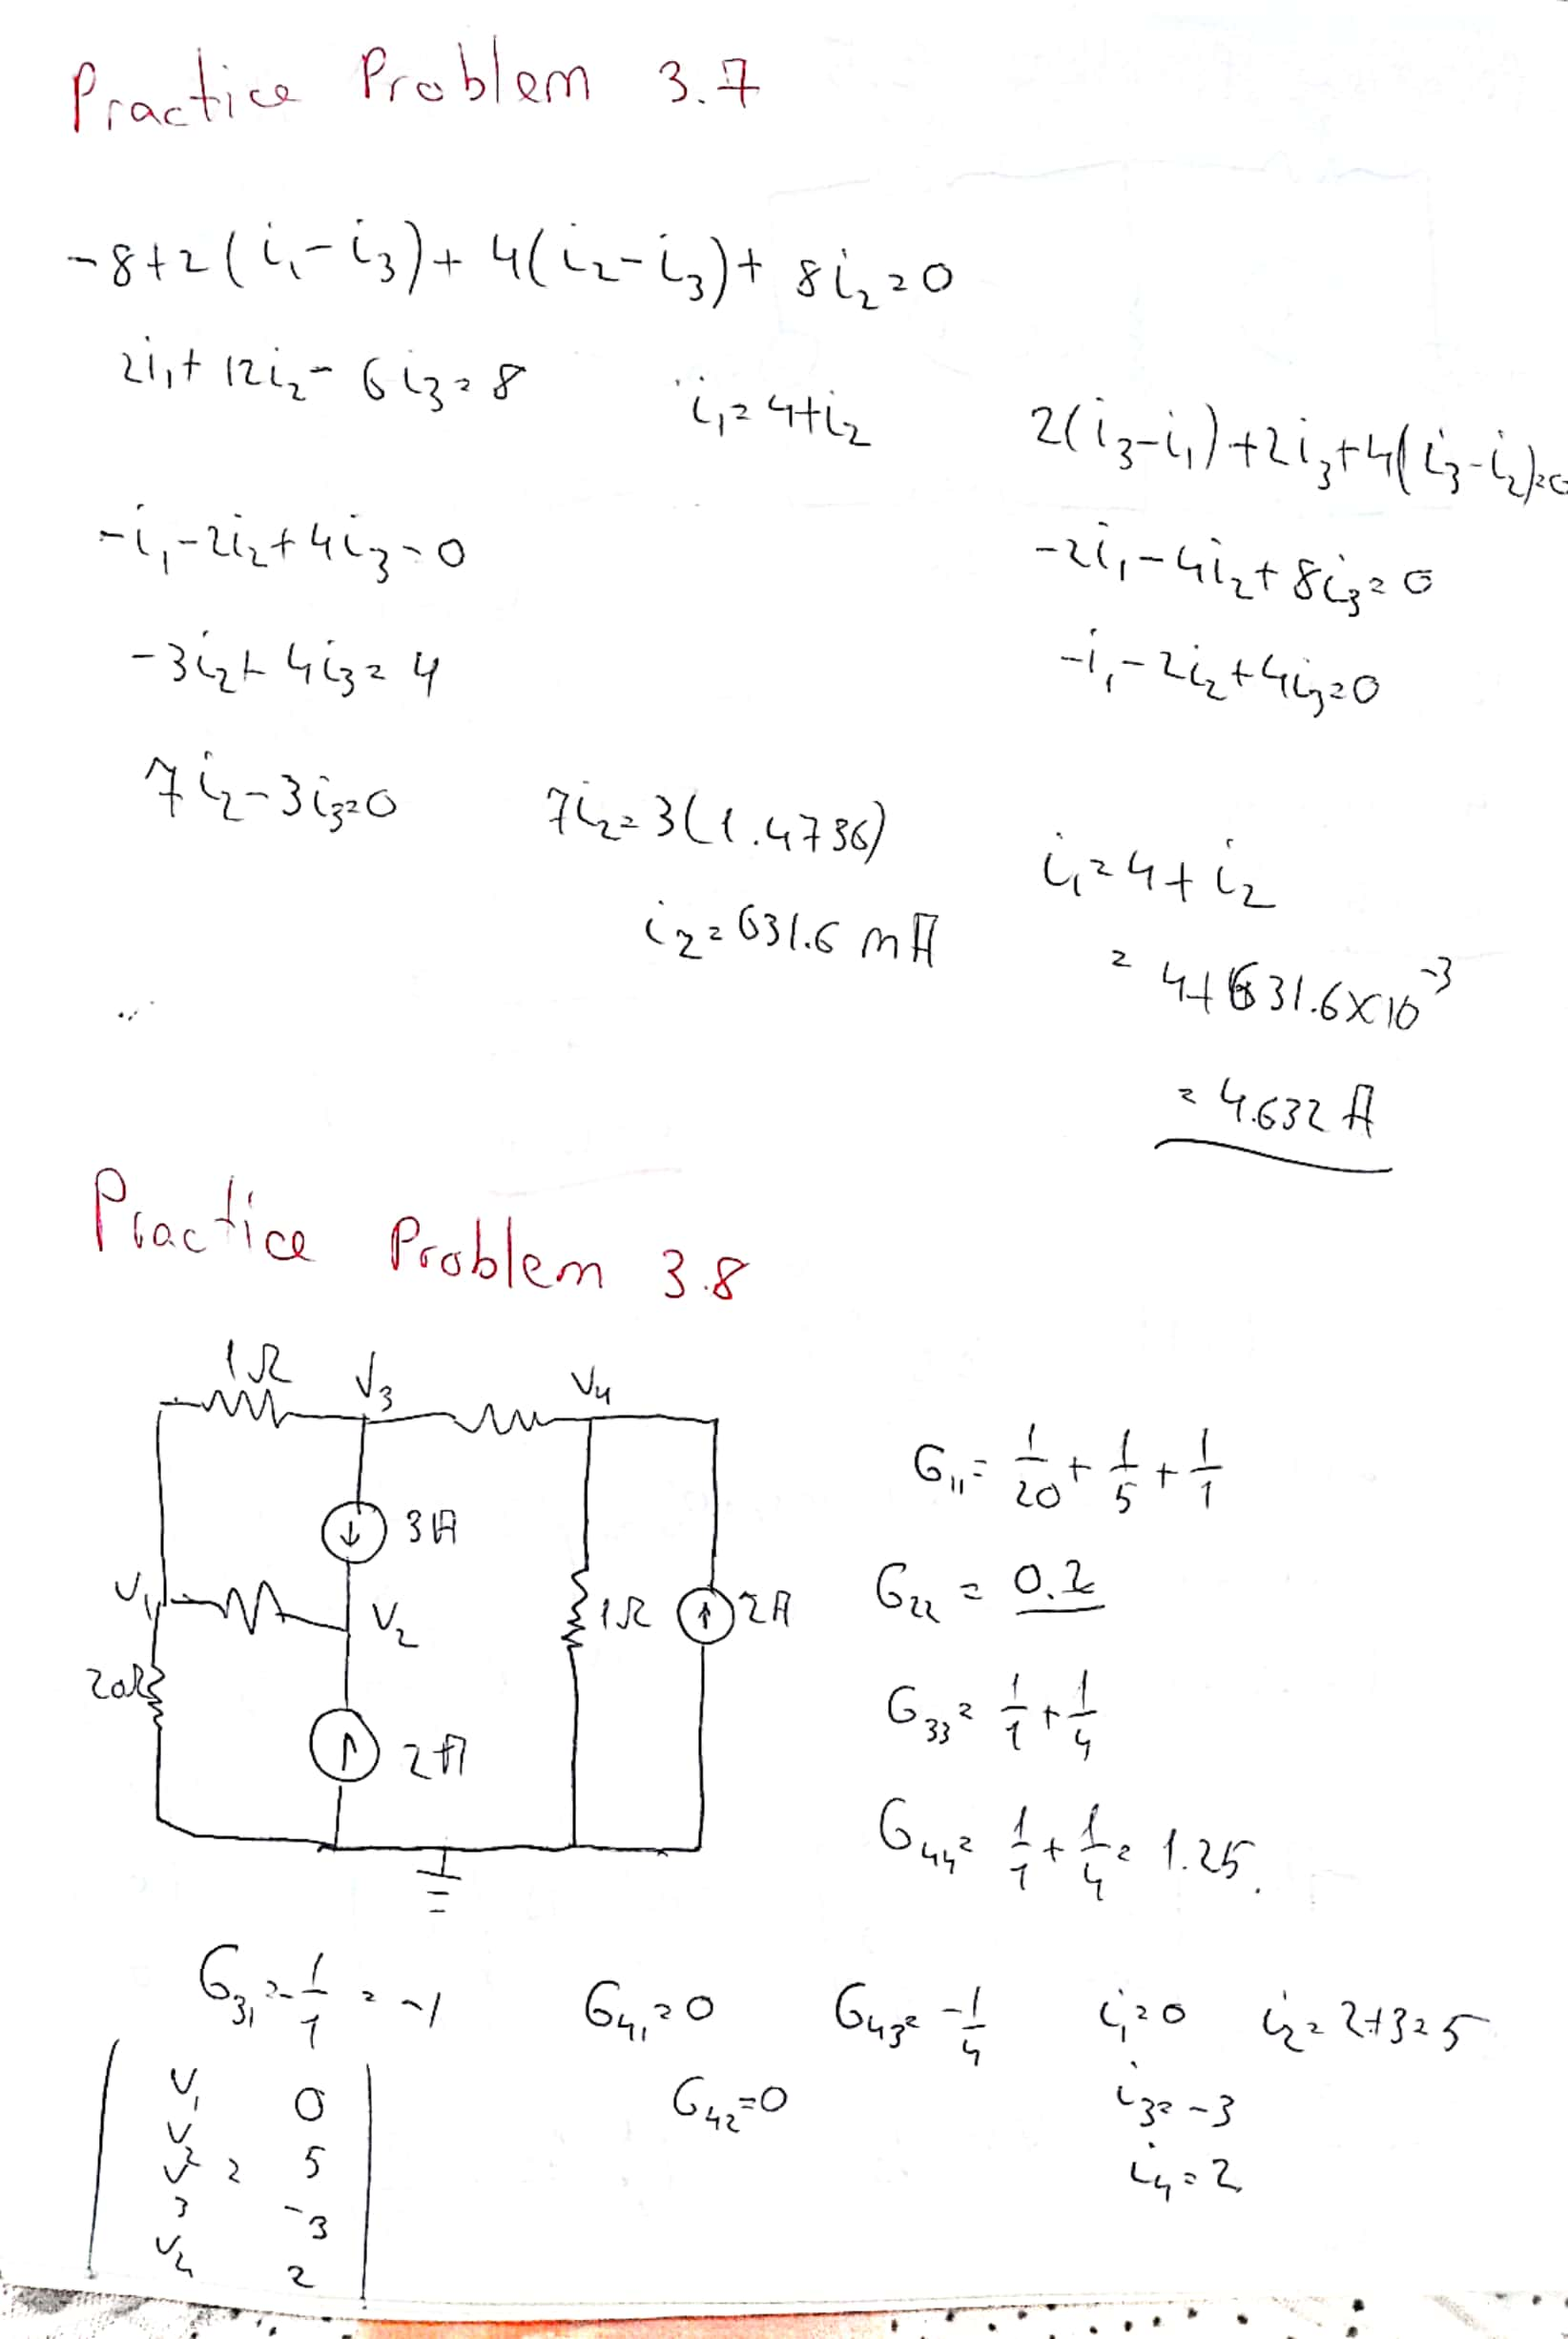 Practice Problem 3.7
-8+2(i₁-i₃)+4(i₂-i₃)+8i₂=0
2i₁+12i₂-6i₃=8
i₁=4+i₂
2(i₃-i₁)+2i₃+4(i₃-i₂)=0
-i₁-2i₂+4i₃=0
-2i₁-4i₂+8i₃=0
-3i₂+4i₃=4
-i₁-2i₂+4i₃=0
7i₂-3i₃=0
7i₂=3(1.4736)
i₁=4+i₂
i₂=631.6 mA
=4+631.6×10⁻³
=4.632 A
Practice Problem 3.8
1Ω V₃ V₄
3A
V₁ V₂ 1Ω 2A
20Ω
2A
G₁₁=1/20+1/5+1/1
G₂₂=0.2
G₃₃=1/1+1/4
G₄₄=1/1+1/4=1.25.
G₃₁=-1/1=-1 G₄₁=0 G₄₃=-1/4 i₁=0 i₂=2+3=5
G₄₂=0 i₃=-3
i₄=2
V₁ 0
V₂ = 5
V₃ -3
V₄ 2